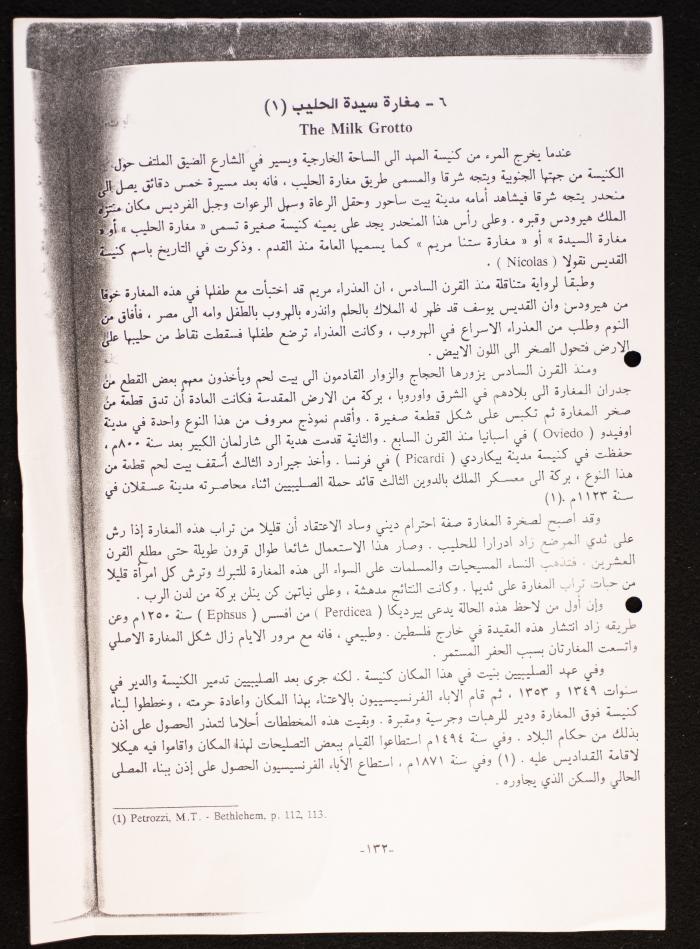 ٦ - مغارة سيدة الحليب (١)
The Milk Grotto
عندما يخرج المرء من كنيسة المهد الى الساحة الخارجية ويسير في الشارع الضيق الملتف حول
الكنيسة من جهتها الجنوبية ويتجه شرقا والمسمى طريق مغارة الحليب ، فانه بعد مسيرة خمس دقائق يصل الى
منحدر يتجه شرقا فيشاهد أمامه مدينة بيت ساحور وحقل الرعاة وسهل الرعوات وجبل الفرديس مكان منتزه
الملك هيرودس وقبره . وعلى رأس هذا المنحدر يجد على يمينه كنيسة صغيرة تسمى « مغارة الحليب » أو «
مغارة السيدة » أو « مغارة ستنا مريم » كما يسميها العامة منذ القدم . وذكرت في التاريخ باسم كنيسة
القديس نقولا ( Nicolas ) .
وطبقاً لرواية متناقلة منذ القرن السادس ، ان العذراء مريم قد اختبأت مع طفلها في هذه المغارة خوفا
من هيرودس وان القديس يوسف قد ظهر له الملاك بالحلم وانذره بالهروب بالطفل وامه الى مصر ، فأفاق من
النوم وطلب من العذراء الاسراع في الهروب ، وكانت العذراء ترضع طفلها فسقطت نقاط من حليبها على
الارض فتحول الصخر الى اللون الابيض .
ومنذ القرن السادس يزورها الحجاج والزوار القادمون الى بيت لحم ويأخذون معهم بعض القطع من
جدران المغارة الى بلادهم في الشرق واوروبا ، بركة من الارض المقدسة فكانت العادة أن تدق قطعة من
صخر المغارة ثم تكبس على شكل قطعة صغيرة . وأقدم نموذج معروف من هذا النوع واحدة في مدينة
اوفيدو ( Oviedo ) في اسبانيا منذ القرن السابع . والثانية قدمت هدية الى شارلمان الكبير بعد سنة ٨٠٠م ،
حفظت في كنيسة مدينة بيكاردي ( Picardi ) في فرنسا . وأخذ جيرارد الثالث أسقف بيت لحم قطعة من
هذا النوع ، بركة الى معسكر الملك بالدوين الثالث قائد حملة الصليبيين اثناء محاصرته مدينة عسقلان في
سنة ١١٢٣م .(١)
وقد أصبح لصخرة المغارة صفة احترام ديني وساد الاعتقاد أن قليلا من تراب هذه المغارة إذا رش
على ثدي المرضع زاد ادرارا للحليب . وصار هذا الاستعمال شائعا طوال قرون طويلة حتى مطلع القرن
العشرين . فتذهب النساء المسيحيات والمسلمات على السواء الى هذه المغارة للتبرك وترش كل امرأة قليلا
من حبات تراب المغارة على ثديها . وكانت النتائج مدهشة ، وعلى نياتهن كن ينلن بركة من لدن الرب .
وإن أول من لاحظ هذه الحالة يدعى بيرديكا ( Perdicea ) من افسس ( Ephsus ) سنة ١٢٥٠م وعن
طريقه زاد انتشار هذه العقيدة في خارج فلسطين . وطبيعي ، فانه مع مرور الايام زال شكل المغارة الاصلي
واتسعت المغارتان بسبب الحفر المستمر .
وفي عهد الصليبيين بنيت في هذا المكان كنيسة . لكنه جرى بعد الصليبيين تدمير الكنيسة والدير في
سنوات ١٣٤٩ و ١٣٥٣ ، ثم قام الاباء الفرنسيسييون بالاعتناء بهذا المكان واعادة حرمته ، وخططوا لبناء
كنيسة فوق المغارة ودير للرهبات وجرسية ومقبرة . وبقيت هذه المخططات أحلاما لتعذر الحصول على اذن
بذلك من حكام البلاد . وفي سنة ١٤٩٤م استطاعوا القيام ببعض التصليحات لهذا المكان واقاموا فيه هيكلا
لاقامة القداديس عليه . (١) وفي سنة ١٨٧١م ، استطاع الآباء الفرنسيسيون الحصول على إذن ببناء المصلى
الحالي والسكن الذي يجاوره .
(1) Petrozzi, M.T. - Bethlehem, p. 112, 113.
-١٣٢-